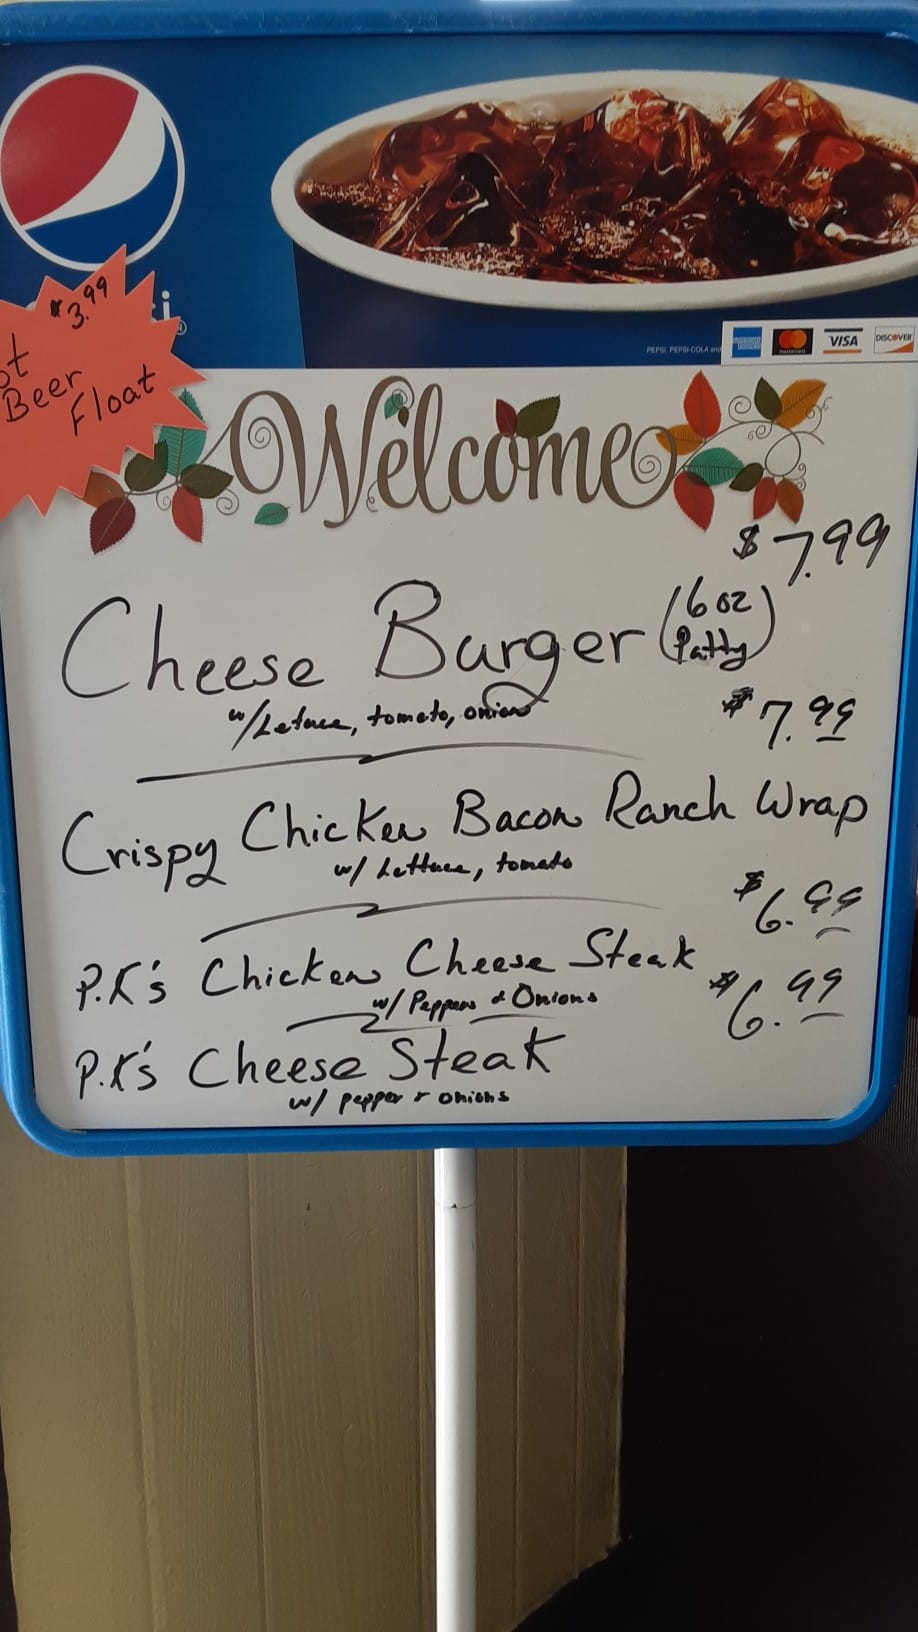 $3.99
ot
Beer
Float
i®
PEPSI, PEPSI-COLA and
AMERICAN EXPRESS
mastercard
VISA
DISCOVER
Welcome
$7.99
Cheese Burger (6 oz Patty)
w/Letuce, tomato, onion
$7.99
Crispy Chicken Bacon Ranch Wrap
w/ Lettuce, tomato
$6.99
P.K's Chicken Cheese Steak
w/ Peppers & Onions
$6.99
P.K's Cheese Steak
w/ pepper & onions